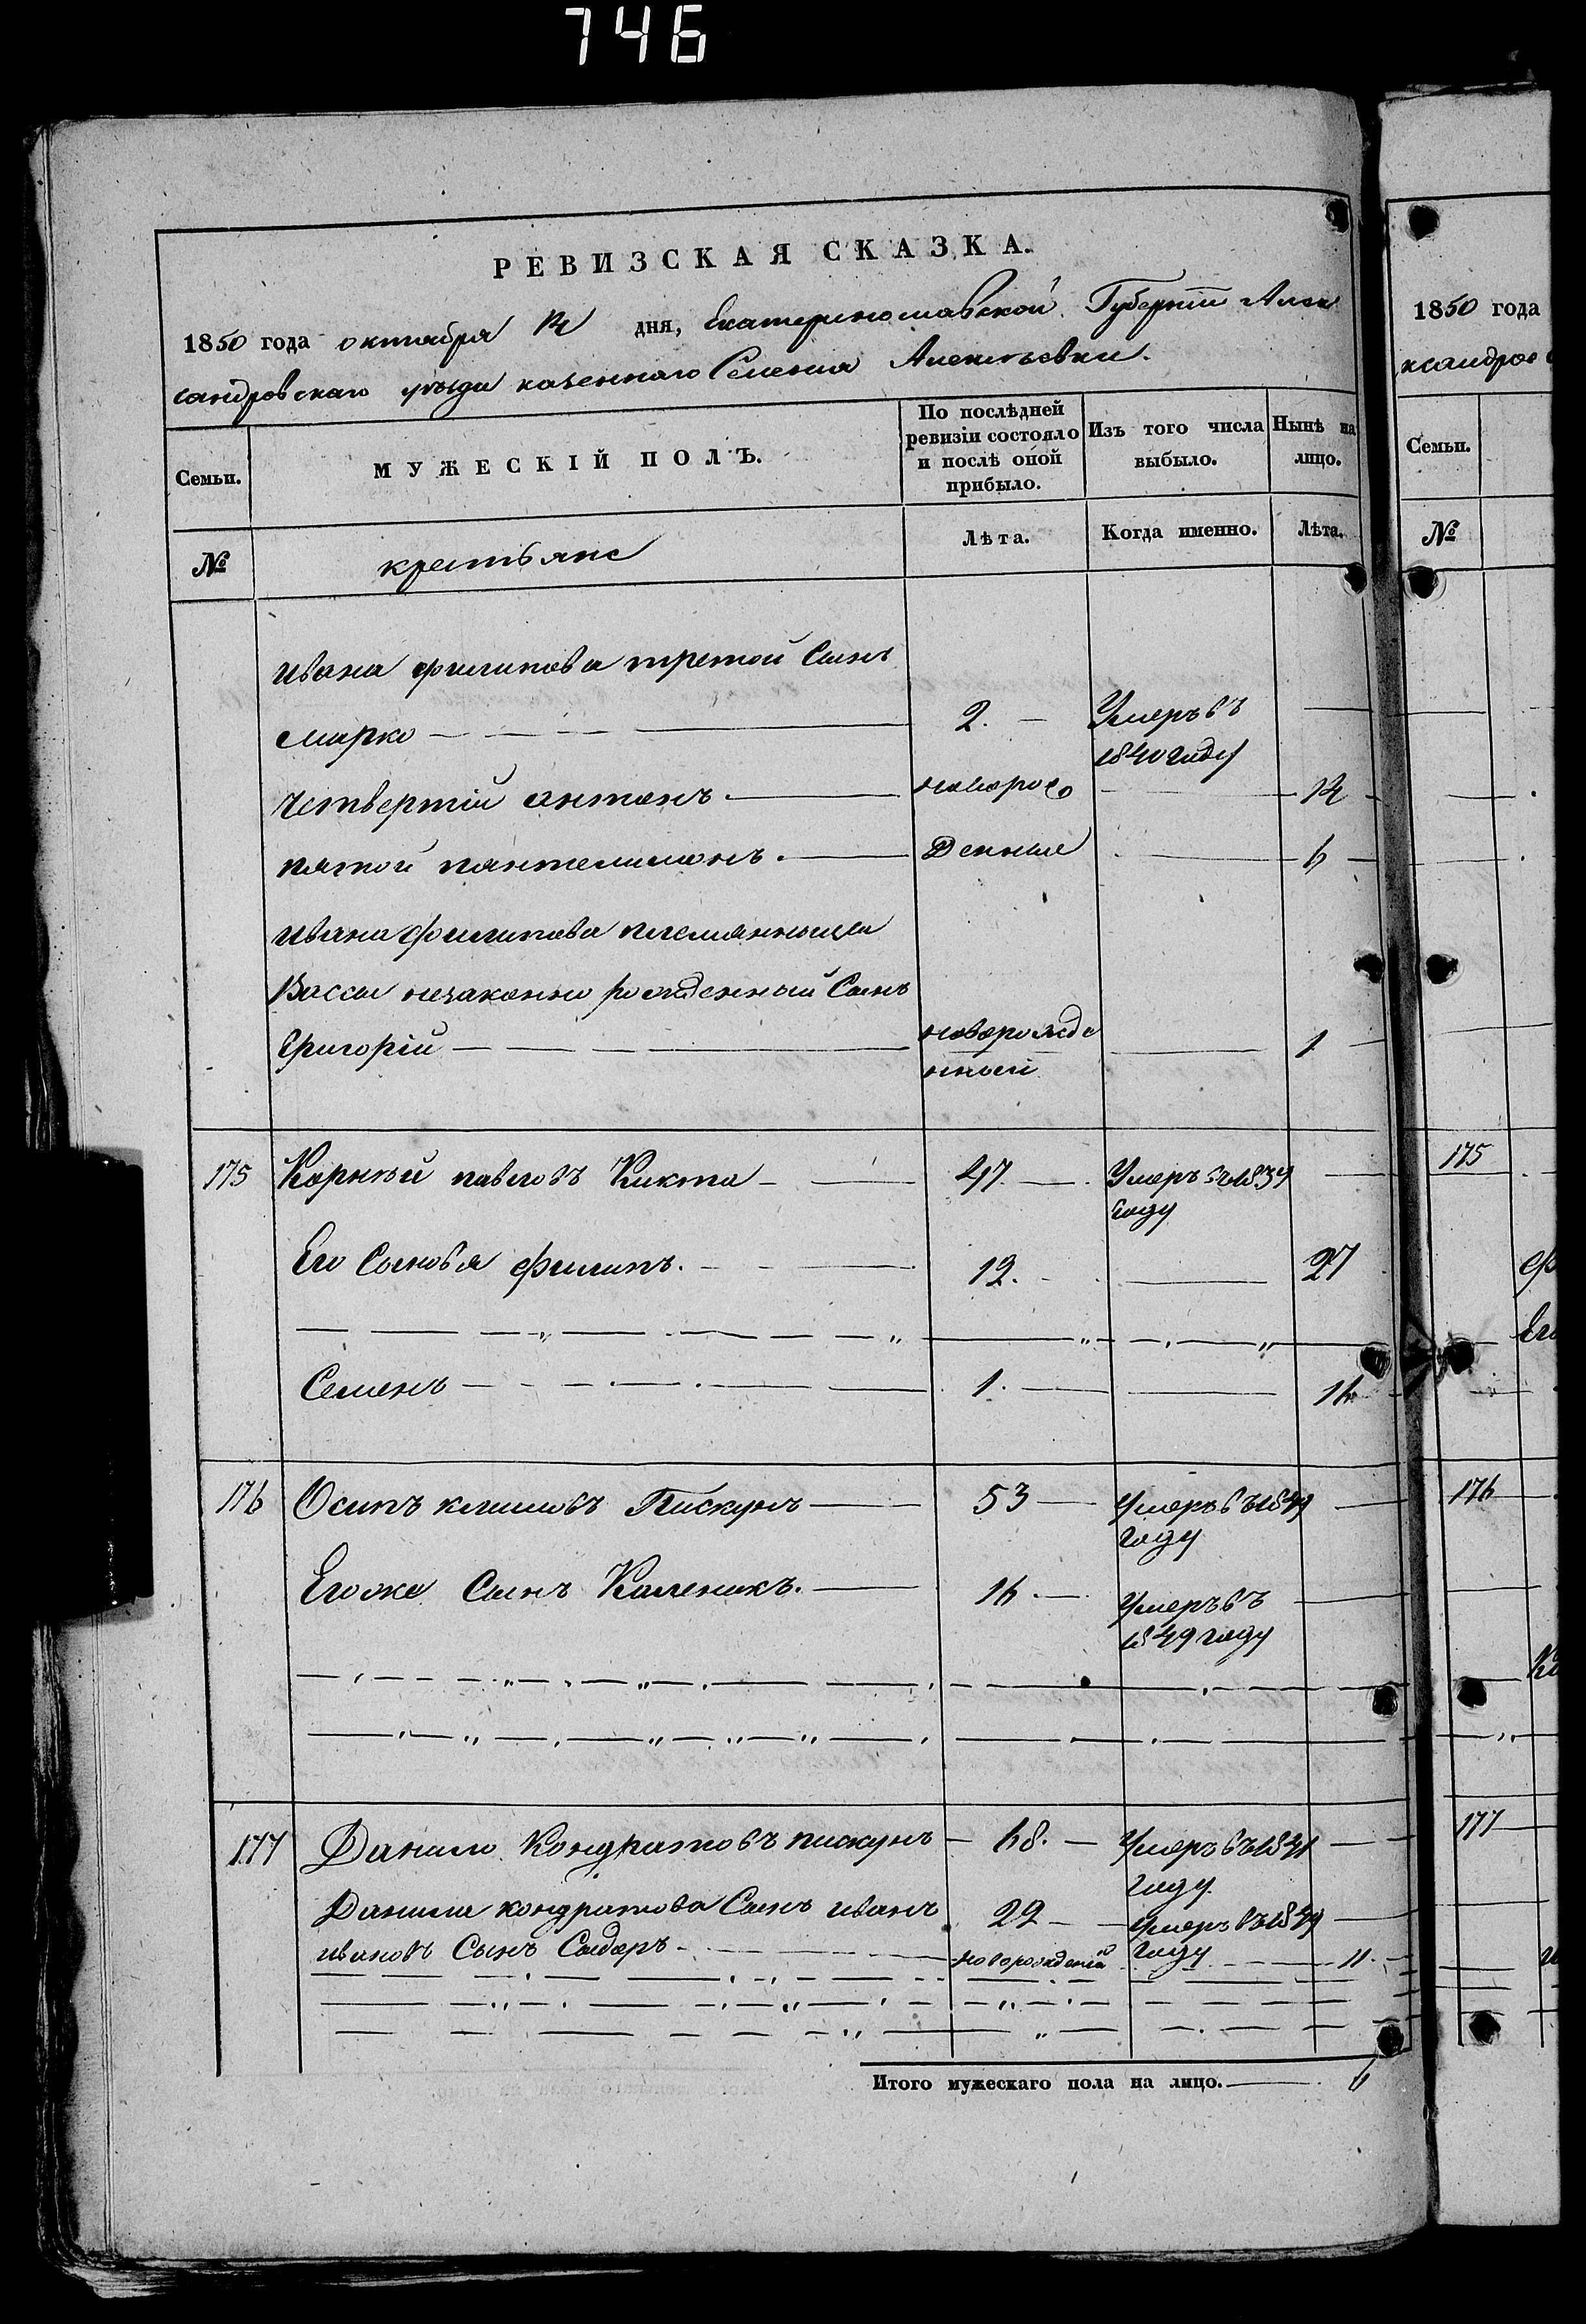 746
РЕВИЗСКАЯ СКАЗКА.
1850 года октября 14 дня, Екатеринославской Губернiи Алек
сандровскаго уѣзда казеннаго Селения Алексѣевки.
Семьи.
МУЖЕСКІЙ ПОЛЪ.
По послѣдней ревизіи состояло и послѣ оной прибыло.
Изъ того числа выбыло.
Нынѣ на лицо.
№
крестьяне
Лѣта.
Когда именно.
Лѣта.
Ивана филипова третой Сынъ
марко 2. Умеръ въ 1840 году
четвертiй антонъ. новоро 14
пятой пантелимонъ. Денные 6
Ивана филипова племянницы
Вассы незаконно рожденный Сынъ
Григорiй новорожде нный 1
175 Корнѣй павловъ Кикта 47 Умеръ въ 1839 году
Его Сыновья филипъ. 12. 27
Семенъ 1. 16
176 Осипъ климовъ Пискунъ 53 Умеръ въ 1849 году
Его же Сынъ Каленикъ. 16. Умеръ въ 1849 году
177 Данило Кондратовъ пискунъ 68. Умеръ въ 1841 году
Данила кондратова Сынъ иванъ 29 Умеръ въ 1849 году
ивановъ Сынъ Сидоръ новорожденый 11.
Итого мужескаго пола на лицо. 6
1850 года
ксандров
Семьи.
№
175
Ф
Его
176
Ка
177